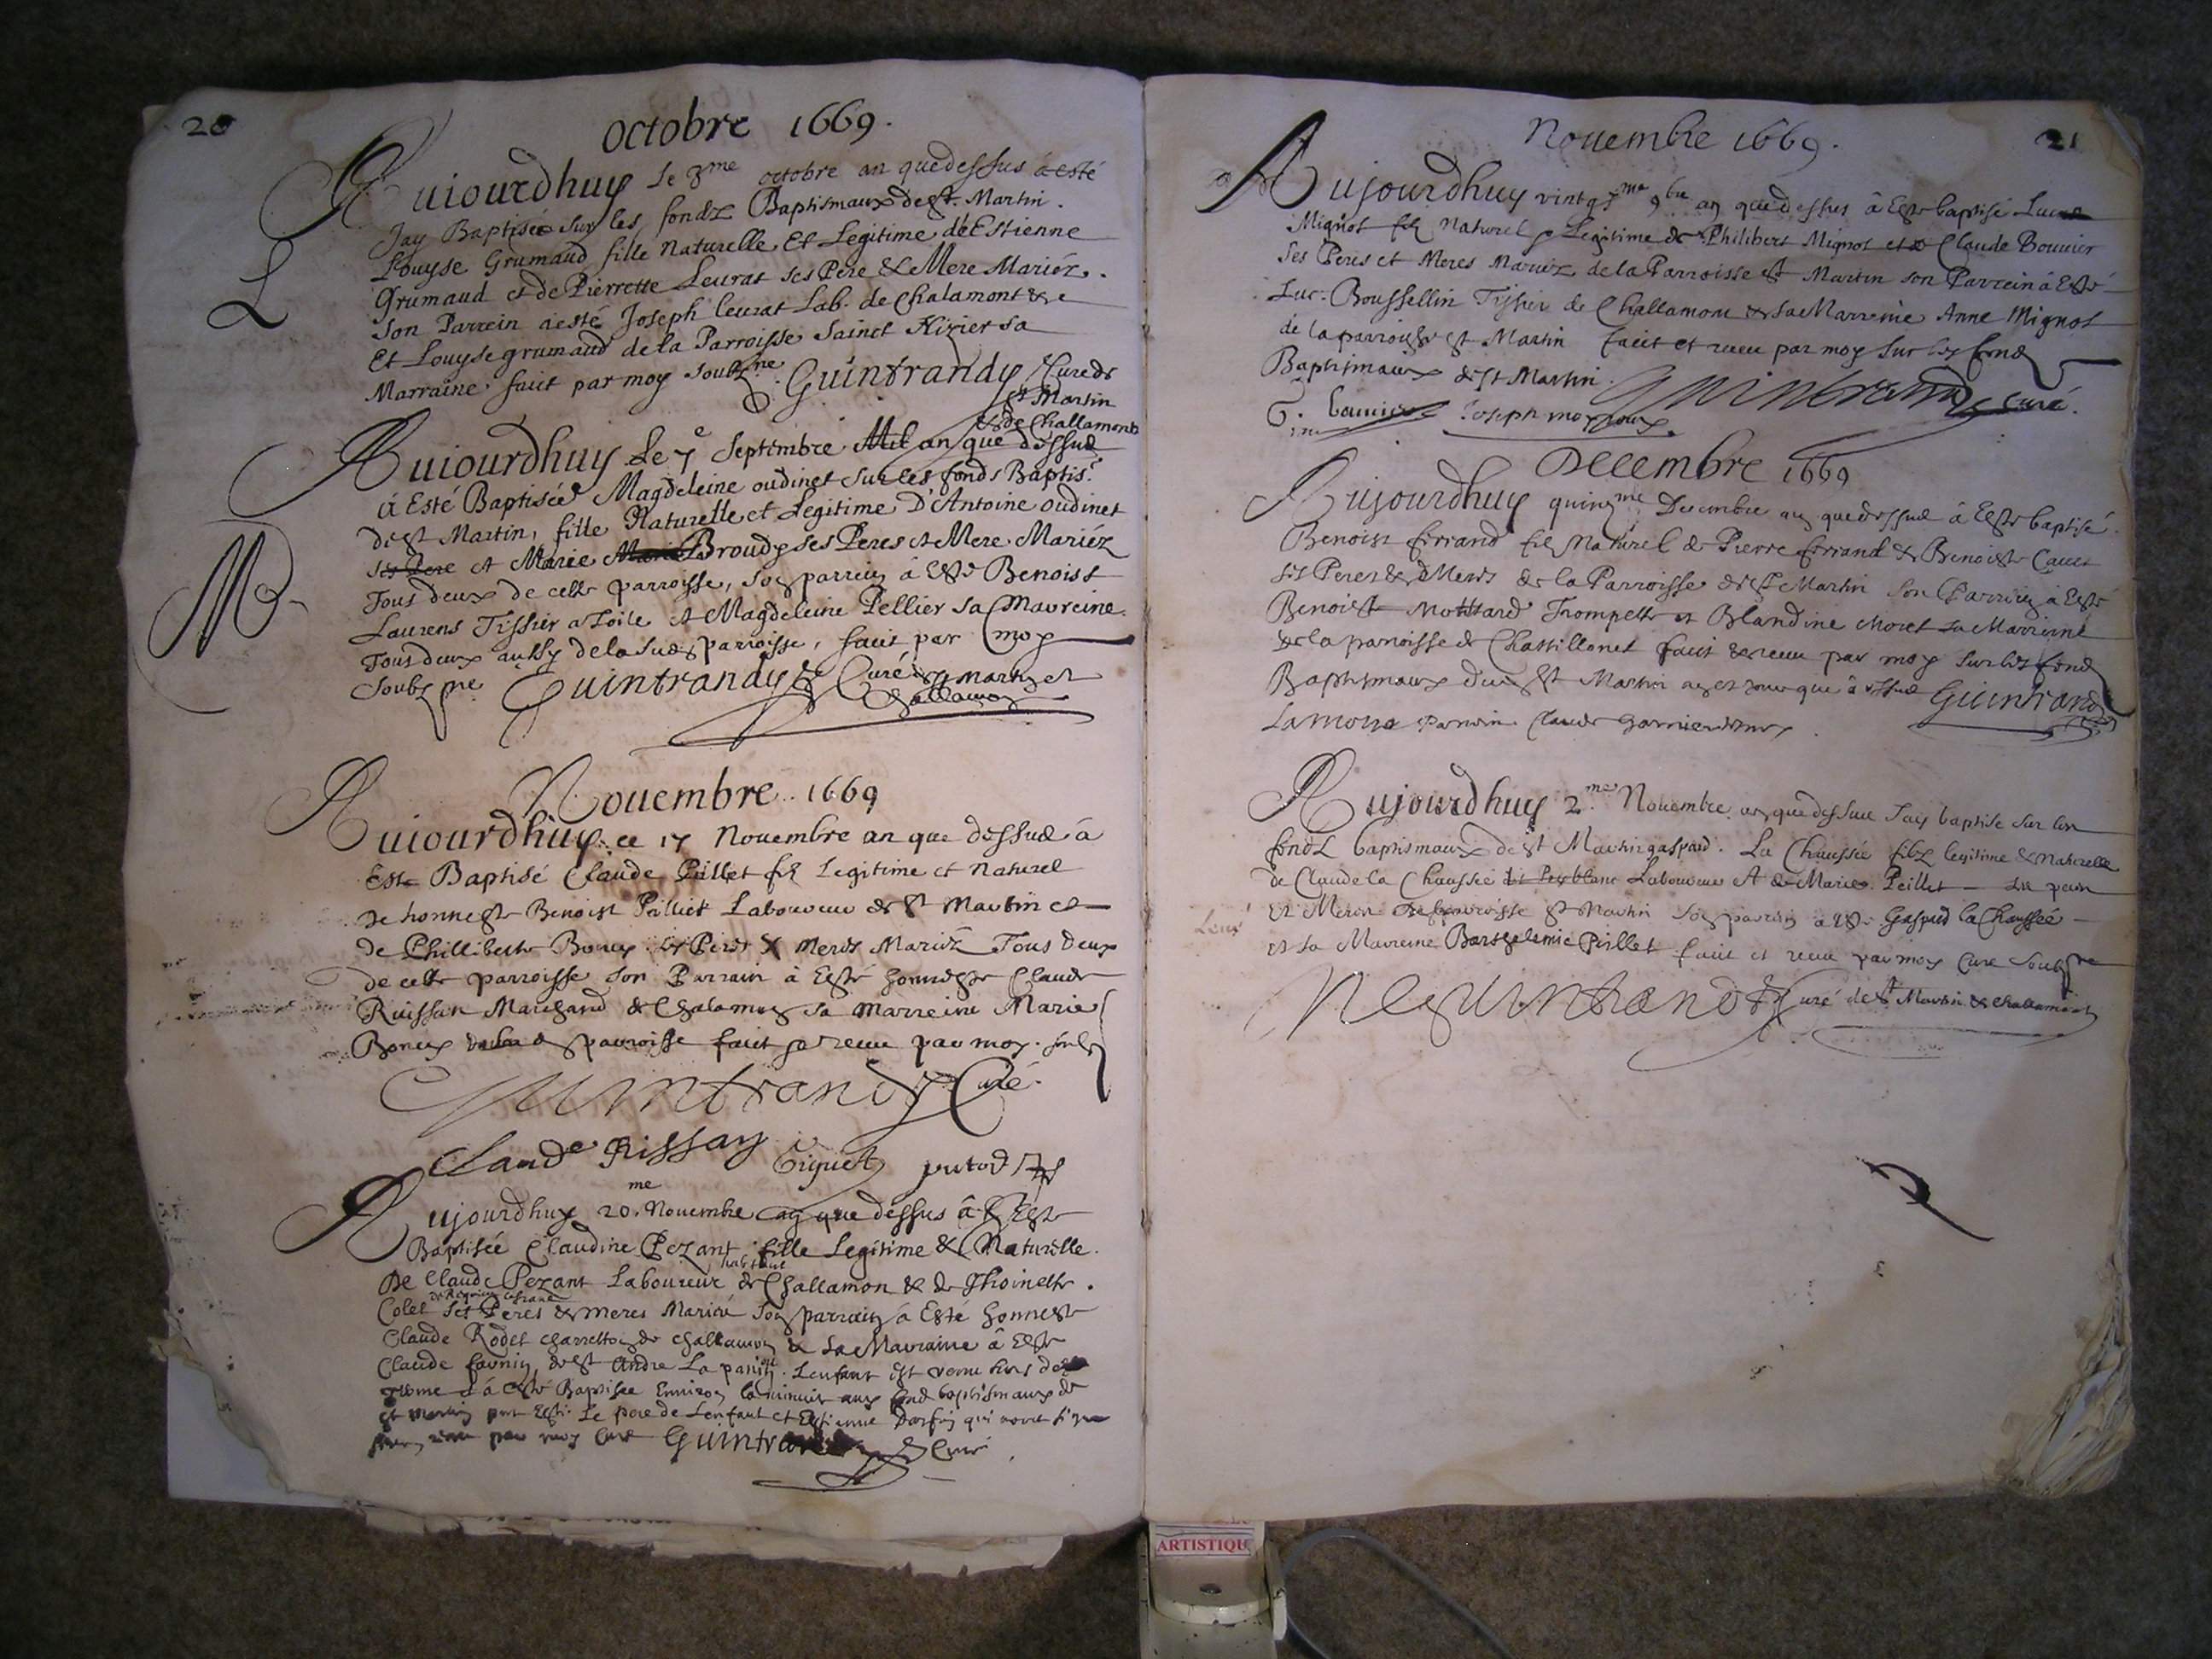 20
Octobre 1669.
Auiourdhuy le 3me octobre an que dessus à esté
Jay Baptisée sur les fondz Baptismaux de St. Martin.
Louyse Grumaud fille Naturelle Et Legitime d'Estienne
Grumaud et de Pierrette Leurat ses Pere & Mere Mariéz.
Son Parrein a esté Joseph leurat Lab. de Chalamont &
Et Louyse grumaud de la Parroisse Sainct Nizier sa
Marraine faict par moy soubzne Guintrandy Curé de
St Martin
& de Challamont
L
Auiourdhuy Le 7e Septembre Mil an que dessus
à Esté Baptisée Magdeleine oudinet sur les fonds Baptis.
de St Martin, fille Naturelle et Legitime D'Antoine oudinet
ses Pere et Marie Marie Broudy ses Peres et Mere Mariéz
Tous deux de cette parroisse, son parrein à esté Benoist
Laurens Tissier a Toile et Magdeleine Pellier sa Mareine.
Tous deux aussy de la sus. parroisse, faict par moy
soubz ne Guintrandy Curé de St Martin et
Challamon
M
Nouembre 1669
Auiourdhuy ce 17 Nouembre an que dessus à
Esté Baptisé Claude Peillet filz Legitime et naturel
De honneste Benoist Palliet Laboureur de St Martin et
de Phillibert Boney ses Peres & meres Mariéz Tous deux
de cette parroisse son Parrain à Esté honneste Claude
Ruissan Marchand de Chalamon sa marreine Marie
Boney parroisse faict & receu par moy. soubz
Guintrandy Curé.
Claude Rissay
Aujourdhuy 20.me Nouembre an que dessus â Esté
Baptisée Claudine Pezant, fille Legitime & Naturelle.
De Claude Pezant Laboureur habitant de Challamon & de Thoinette.
Colet ses Peres & meres Mariéz son parrain à Esté honneste
Claude Rodet charretton de challamon & sa Marraine â Esté
Claude faunin de St André La panisse. Lenfant est venu hors de
terme & à esté Baptisée Enuiron la minuit aux fond baptismaux de
St Martin Le pere de Lenfant et Estienne qui
par moy Curé Guintrandy Curé
21
Nouembre 1669.
Aujourdhuy vint 9bre an que dessus â Esté baptisé Luc
Mignot filz naturel & Legitime de Philibert Mignot et Claude Bouuier
Ses Peres et Meres Mariéz de la Parroisse St Martin son Parrein à Esté
Luc. Boussellin Tissier de Challamon & sa Marreine Anne Mignot
de la parroisse St Martin faict et receu par moy sur les fond
Baptismaux de St Martin. Guintrandy Curé.
Joseph
Decembre 1669
Aujourdhuy quinzme Decembre an que dessus à Esté baptisé
Benoist ferrand filz Naturel de Pierre ferrand & Benoiste Cauet
ses Peres & Meres de la Parroisse de St Martin son Parrein à Esté
Benoist Mottard Trompette et Blandine Moret sa Marreine
de la parroisse de Chastillonet faict & receu par moy sur les fond
Baptismaux de St Martin an et jour que dessus Guintrandy
Lamotte parrain Claude garnier
Aujourdhuy 2.me Nouembre an que dessus Jay baptise sur les
fondz baptismaux de St Martin gaspard. La Chaussée filz legitime & naturelle
de Claude la Chaussée Laboureur et de Marie Peillet
et Meres de parroisse St Martin son parrain à esté Gaspard la Chaussée
et sa Marreine Barthelemie Peillet faict et receu par moy Curé soubzne
Guintrandy Curé de St Martin & challamont
ARTISTIQU